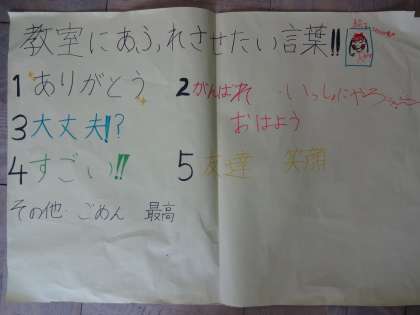 教室にあふれさせたい言葉!!
1 ありがとう
2 がんばれ いっしょにやろ〜
おはよう
3 大丈夫!?
4 すごい!!
5 友達 笑顔
その他 ごめん 最高